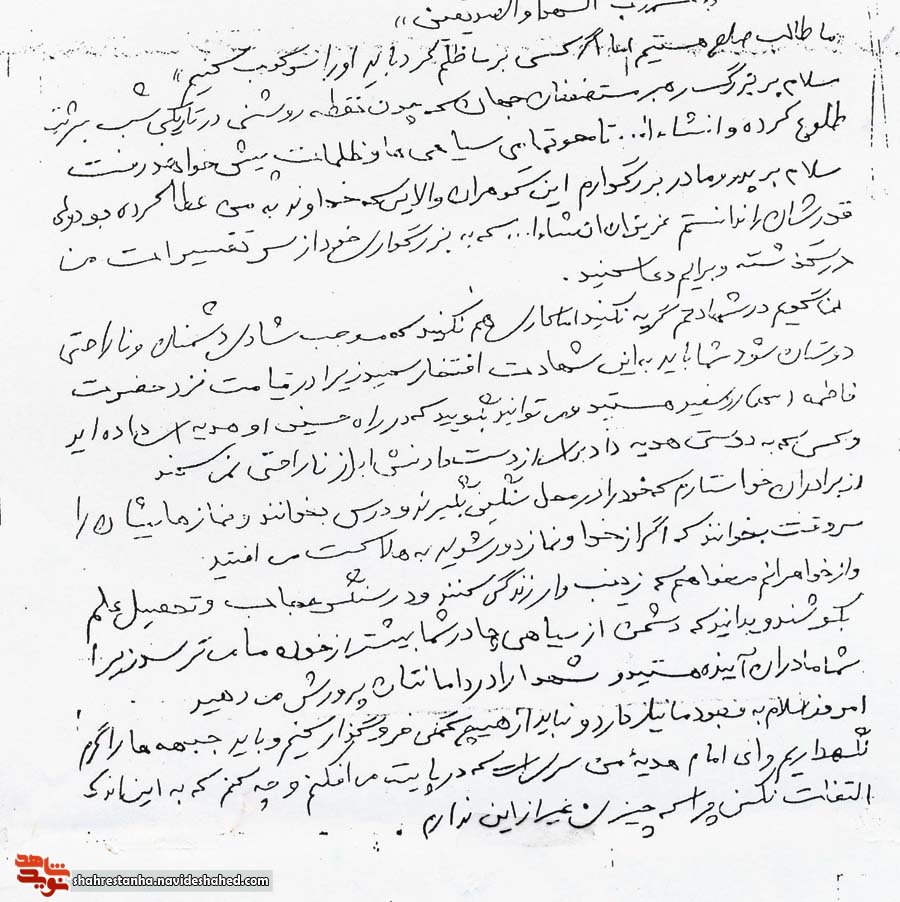 ب الشهدا و الصدیقین»
ما طالب صلح هستیم اما اگر کسی بر ما ظلم کرد باید او را سرکوب کنیم»
سلام بر بزرگ رهبر مستضعفان جهان که چون نقطه روشنی در تاریکی شب
طلوع کرده و انشاء ا... تا محو تمامی سیاهی ها و ظلمات پیش خواهد رفت
سلام بر پدر و مادر بزرگوارم این گوهران والایی که خداوند به من عطا کرده بود ولی
قدرشان را ندانستم عزیزان ان شاء ا... که به بزرگواری خود از سر تقصیرات من
در گذشته و برایم دعا کنید.
نمی گویم در شهادتم گریه نکنید اما کاری هم نکنید که موجب شادی دشمنان و ناراحتی
دوستان شود شما باید به این شهادت افتخار کنید زیرا در قیامت نزد حضرت
فاطمه (س) رو سفید هستید و می توانید بگویید که در راه حسین او هدیه ای داده اید
و کسی که به دوستی هدیه داد برای از دست دادنش ابراز ناراحتی نمی کند
از برادران خواستارم که خود را در محل سنگین بگیرند و درس بخوانند و نمازهایشان را
سر وقت بخوانند که اگر از خدا و نماز دور شوید به هلاکت می افتید
و از خواهرانم میخواهم که زینب وار زندگی کنند و در سنگر حجاب و تحصیل علم
بکوشند و بدانید که دشمن از سیاهی چادر شما بیشتر از خون ما می ترسد زیرا
شما مادران آینده هستید و شهدا را در دامانتان پرورش می دهید
امروز اسلام به وجود ما نیاز دارد و نباید از هیچ کمکی فروگذار کنیم و باید جبهه ها را گرم
نگهداریم وای امام هدیه من سری است که در پایت می افکنم و چه کنم که به این اندک
التفات نکنی چرا که چیزی غیر از این ندارم.
شاهد
نوید
shahrestanha.navideshahed.com